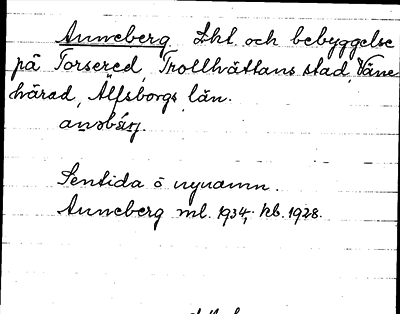 Anneberg Lht och bebyggelse
på Torsered, Trollhättans stad, Väne
härad, Älfsborgs län.
Sentida ö nynamn.
Anneberg ml. 1934; kb. 1928.